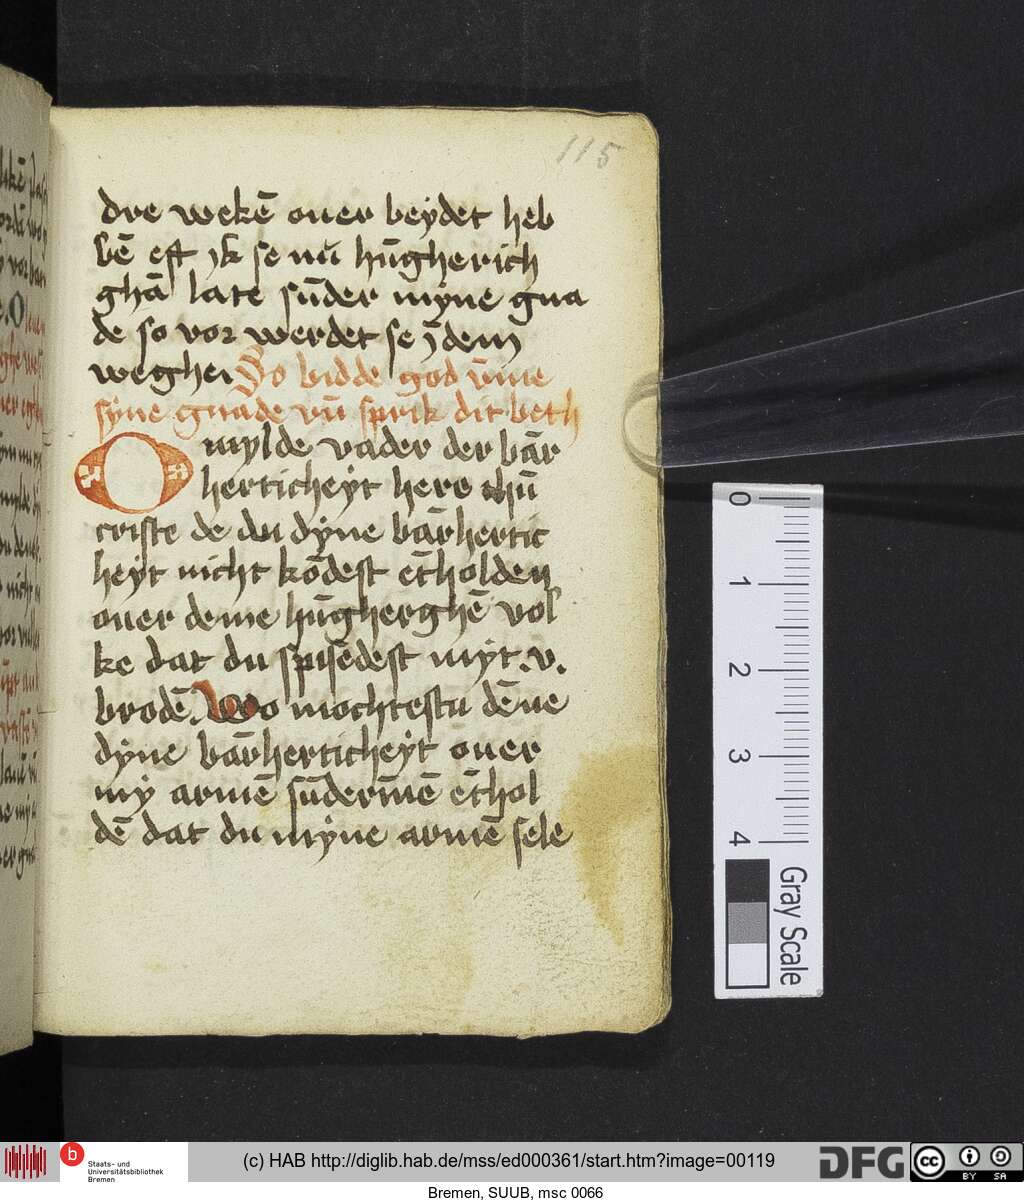 115
dre wekē ouer beydet heb
bē eft yk se nu hūgherich
ghā late sūder myne gna
de so vor werdet se ī dem
weghe So bidde god vme
syne gnade vn̄ sprik dit beth
O mylde vader der bār
herticheyt here ihū
criste de du dyne bārhertic
heyt nicht kōdest ētholden
ouer deme hūgherghē vol
ke dat du spisēdest myt .v.
brodē. Wo mochtestu dēne
dyne bārherticheyt ouer
my armē sūderīnē ēthol
dē dat du myne armē sele
0
1
2
3
4
Gray Scale
b Staats- und
Universitätsbibliothek
Bremen
(c) HAB http://diglib.hab.de/mss/ed000361/start.htm?image=00119
DFG
cc BY SA
Bremen, SUUB, msc 0066